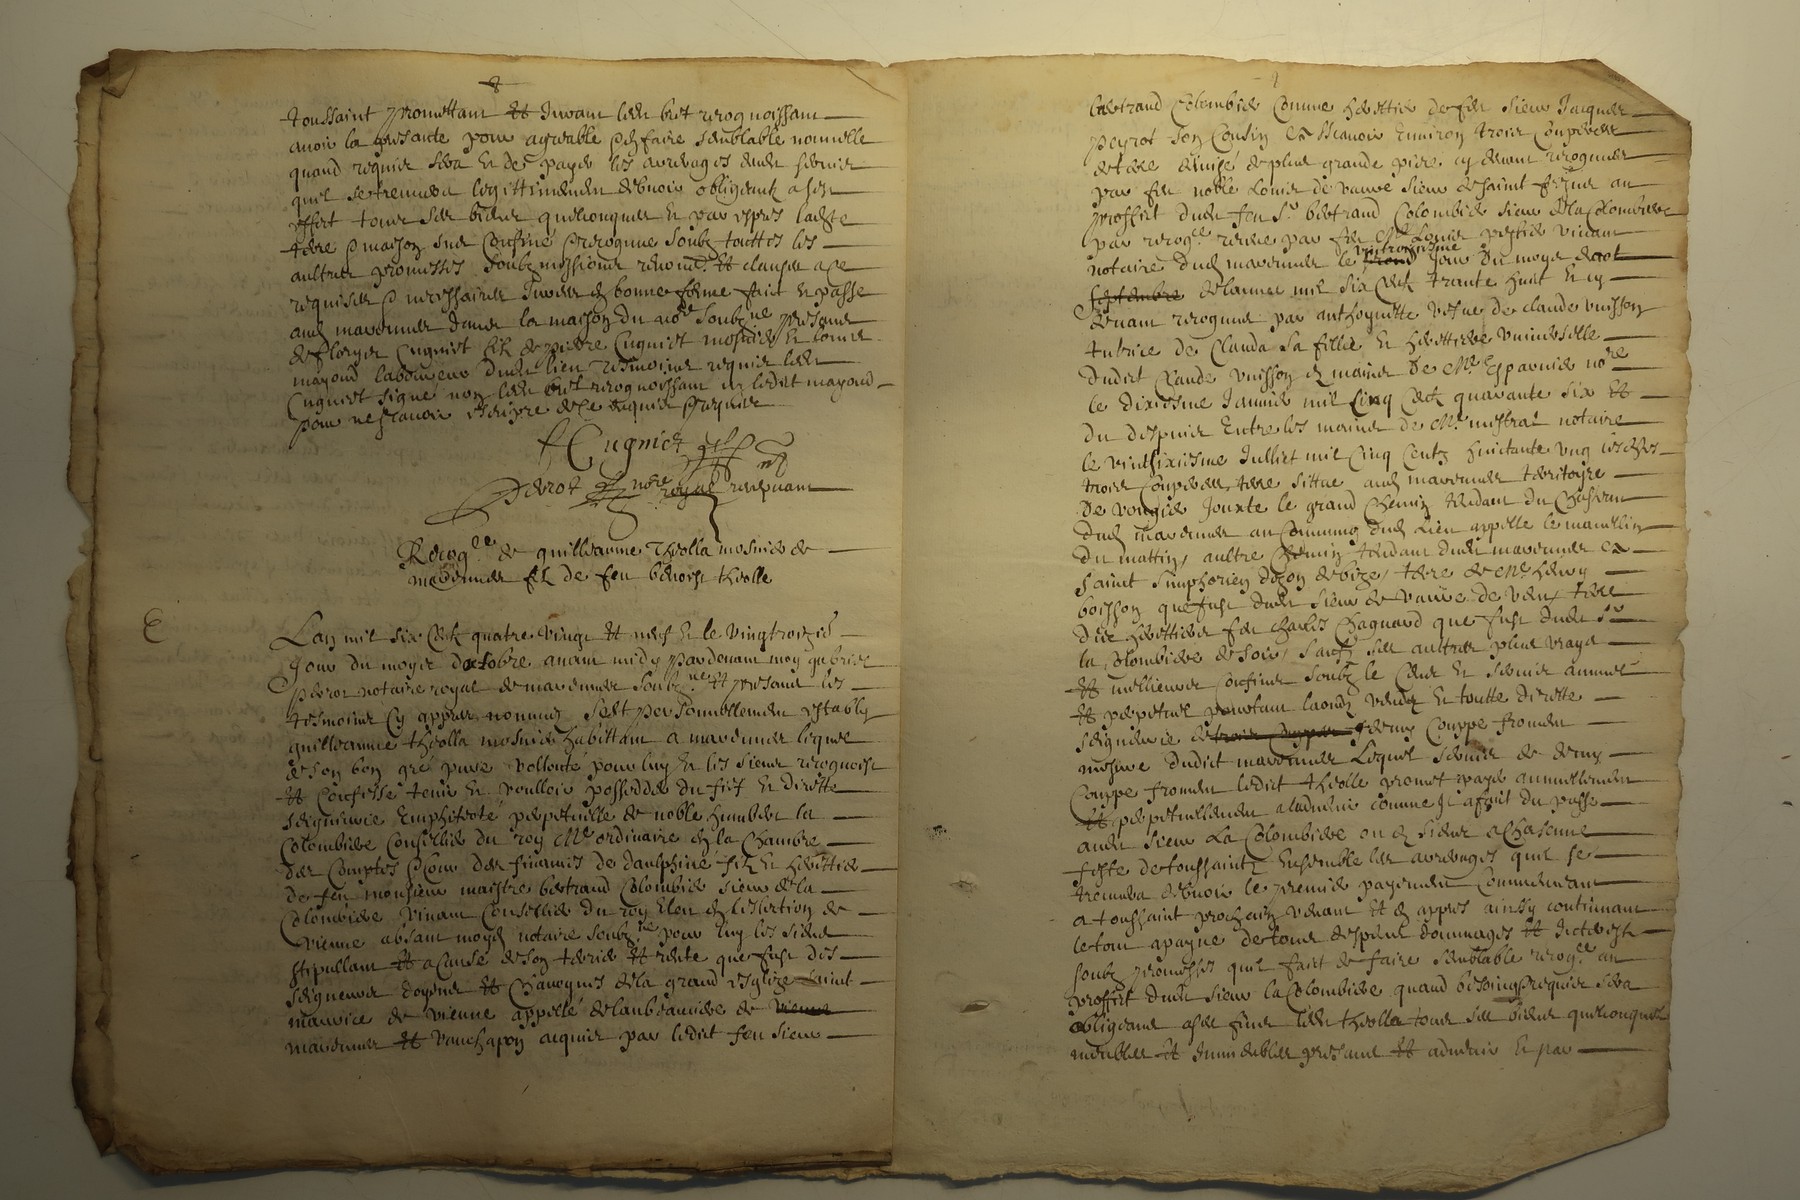 toussaint promettant et jurant led' hect recognoissant
avoir la presante pour agreable & faire semblable nouvelle
quand requis sera et de payer les arrerages dud' servis
quil se treuvera legittimement debvoir obligeant a ces
effect tous ses biens quelconques et par expres ladite
terre & maison sus confiné & recognue soubz touttes les
aultres promesses soubzmissions renon^ et clauses a ce
requises & necessaires jurées en bonne forme faict et passé
aud' dans la maison du no^re soubz^ne presans
de Cugniet filz de pierre Cugniet mosnier et
mayoud laboureur dud' lieu tesmoins requis led'
Cugniet signé non led' recognoissant ny ledict mayoud
pour ne scavoir escripre de ce enquis & requis
Cugniet
Perrot no^re royal recepvant
Recog^ce de guilleaume theolla mosnier de
filz de feu benoist theolle
Lan mil six centz quatre vingt et neuf et le vingtroizie^
jour du moys doctobre avant midy pardevant moy gabriel
Perrot notaire royal de soubz^ne et presans les
tesmoins cy appres nommés sest personnellement estably
guilleaume theolla mosnier habittant a lequel
de son bon gré pure vollonté pour luy et les siens recognoist
et confesse tenir et voulloir posseder du fief et dirette
seigneurie emphiteote perpetuelle de noble humbert la
Colombiere conseillier du roy M^e ordinaire en la chambre
des comptes & cour des finances de dauphiné filz et herettier
de feu monsieur maistre bertrand Colombier sieur de la
Colombiere vivant conseillier du roy eleu en lellection de
vienne absant moyd' notaire soubz^ne pour luy les siens
stipullant et a cause de son terrier et rente que fust des
seigneurs doyens et chanognes de la grand esglize saint
maurice de vienne appellé de de vienne
et acquis par ledict feu sieur
bertrand Colombier comme herettier de feu sieur Jacques
peyrot son cousin a scavoir environ trois couperées
de terre de plus grande piece cy devant recogneue
par feu noble Louis de sieur de saint au
proffict dud' feu s^r bertrand Colombier sieur de la Colombiere
par recog^ce receue par feu M^e Louis vivant
notaire dud' le vintroiziesme jour du moys daot
septembre de lannée mil six centz trante huit et cy
devant recogneue par anthoynette vefve de claude vuisson
tutrice de Clauda sa fillie et herettiere universelle
dudict Claude vuisson en mains de M^e Esparvier no^re
le dixiesme janvier mil cinq centz quarante six et
du despuis entre les mains de M^e mistral notaire
le vintsixiesme juilliet mil cinq centz huictante ung lesdites
trois couperées terre sittue aud' territoire
de jouxte le grand chemin tendant du
dud' au commung dud' lieu appellé le
du mattin, aultre chemin tendant dud' a
saint simphorien dozon de bize, terre de M^e
boisson que fust dud' sieur de de vent, terre
des herettiers feu charles chagnard que fust dud' s^r
la Colombiere de soir, sauf ses aultres plus vrays
et mellieurs confins soubz le cens et servis annuel
et perpetuel portant laoudz vendz et toutte dirette
seigneurie de trois demy couppe froment
mesure dudict Lequel servis de demy
couppe froment ledict theolle promet payer annuellement
et perpetuellement a ladvenir comme il a fait du passé
aud' sieur La Colombiere ou es siens a chascune
feste de toussaintz ensemble les arrerages quil se
treuvera debvoir le premier payement commencant
a toussaint prochain venant et en appres ainssy continuant
le tout a payne de tous despens dommages et interestz
soubz promesses quil fait de faire semblable recog^ce au
proffict dud' sieur la Colombiere quand besoing & requis sera
obligeant a ses fins led' theolla tous ses biens quelconques
meubles et immeubles presans et advenir et par